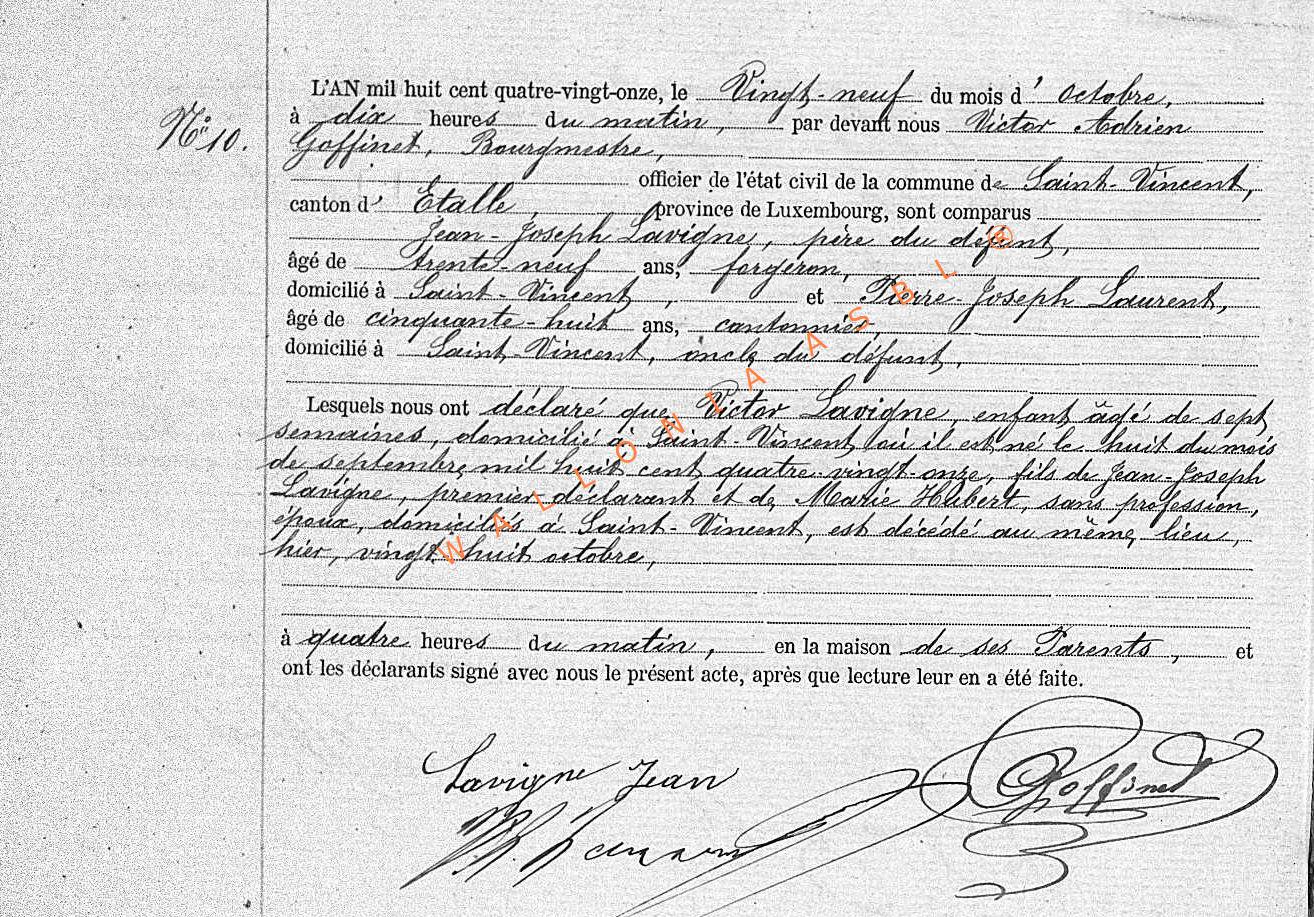 N° 10.
L'AN mil huit cent quatre-vingt-onze, le Vingt-neuf du mois d' octobre,
à dix heures du matin, par devant nous Victor Adrien
Goffinet, Bourgmestre,
officier de l'état civil de la commune de Saint-Vincent,
canton d' Etalle, province de Luxembourg, sont comparus
Jean-Joseph Lavigne, père du défunt,
âgé de trente-neuf ans, forgeron,
domicilié à Saint-Vincent, et Pierre-Joseph Laurent,
âgé de cinquante-huit ans, cantonnier,
domicilié à Saint-Vincent, oncle du défunt,
Lesquels nous ont déclaré que Victor Lavigne, enfant âgé de sept
semaines, domicilié à Saint-Vincent où il est né le huit du mois
de septembre mil huit cent quatre-vingt-onze, fils de Jean-Joseph
Lavigne, premier déclarant et de Marie Hubert, sans profession,
époux, domiciliés à Saint-Vincent, est décédé au même lieu,
hier, vingt huit octobre,
à quatre heures du matin, en la maison de ses Parents, et
ont les déclarants signé avec nous le présent acte, après que lecture leur en a été faite.
Lavigne Jean
Goffinet
WALLONIA ASBL ®